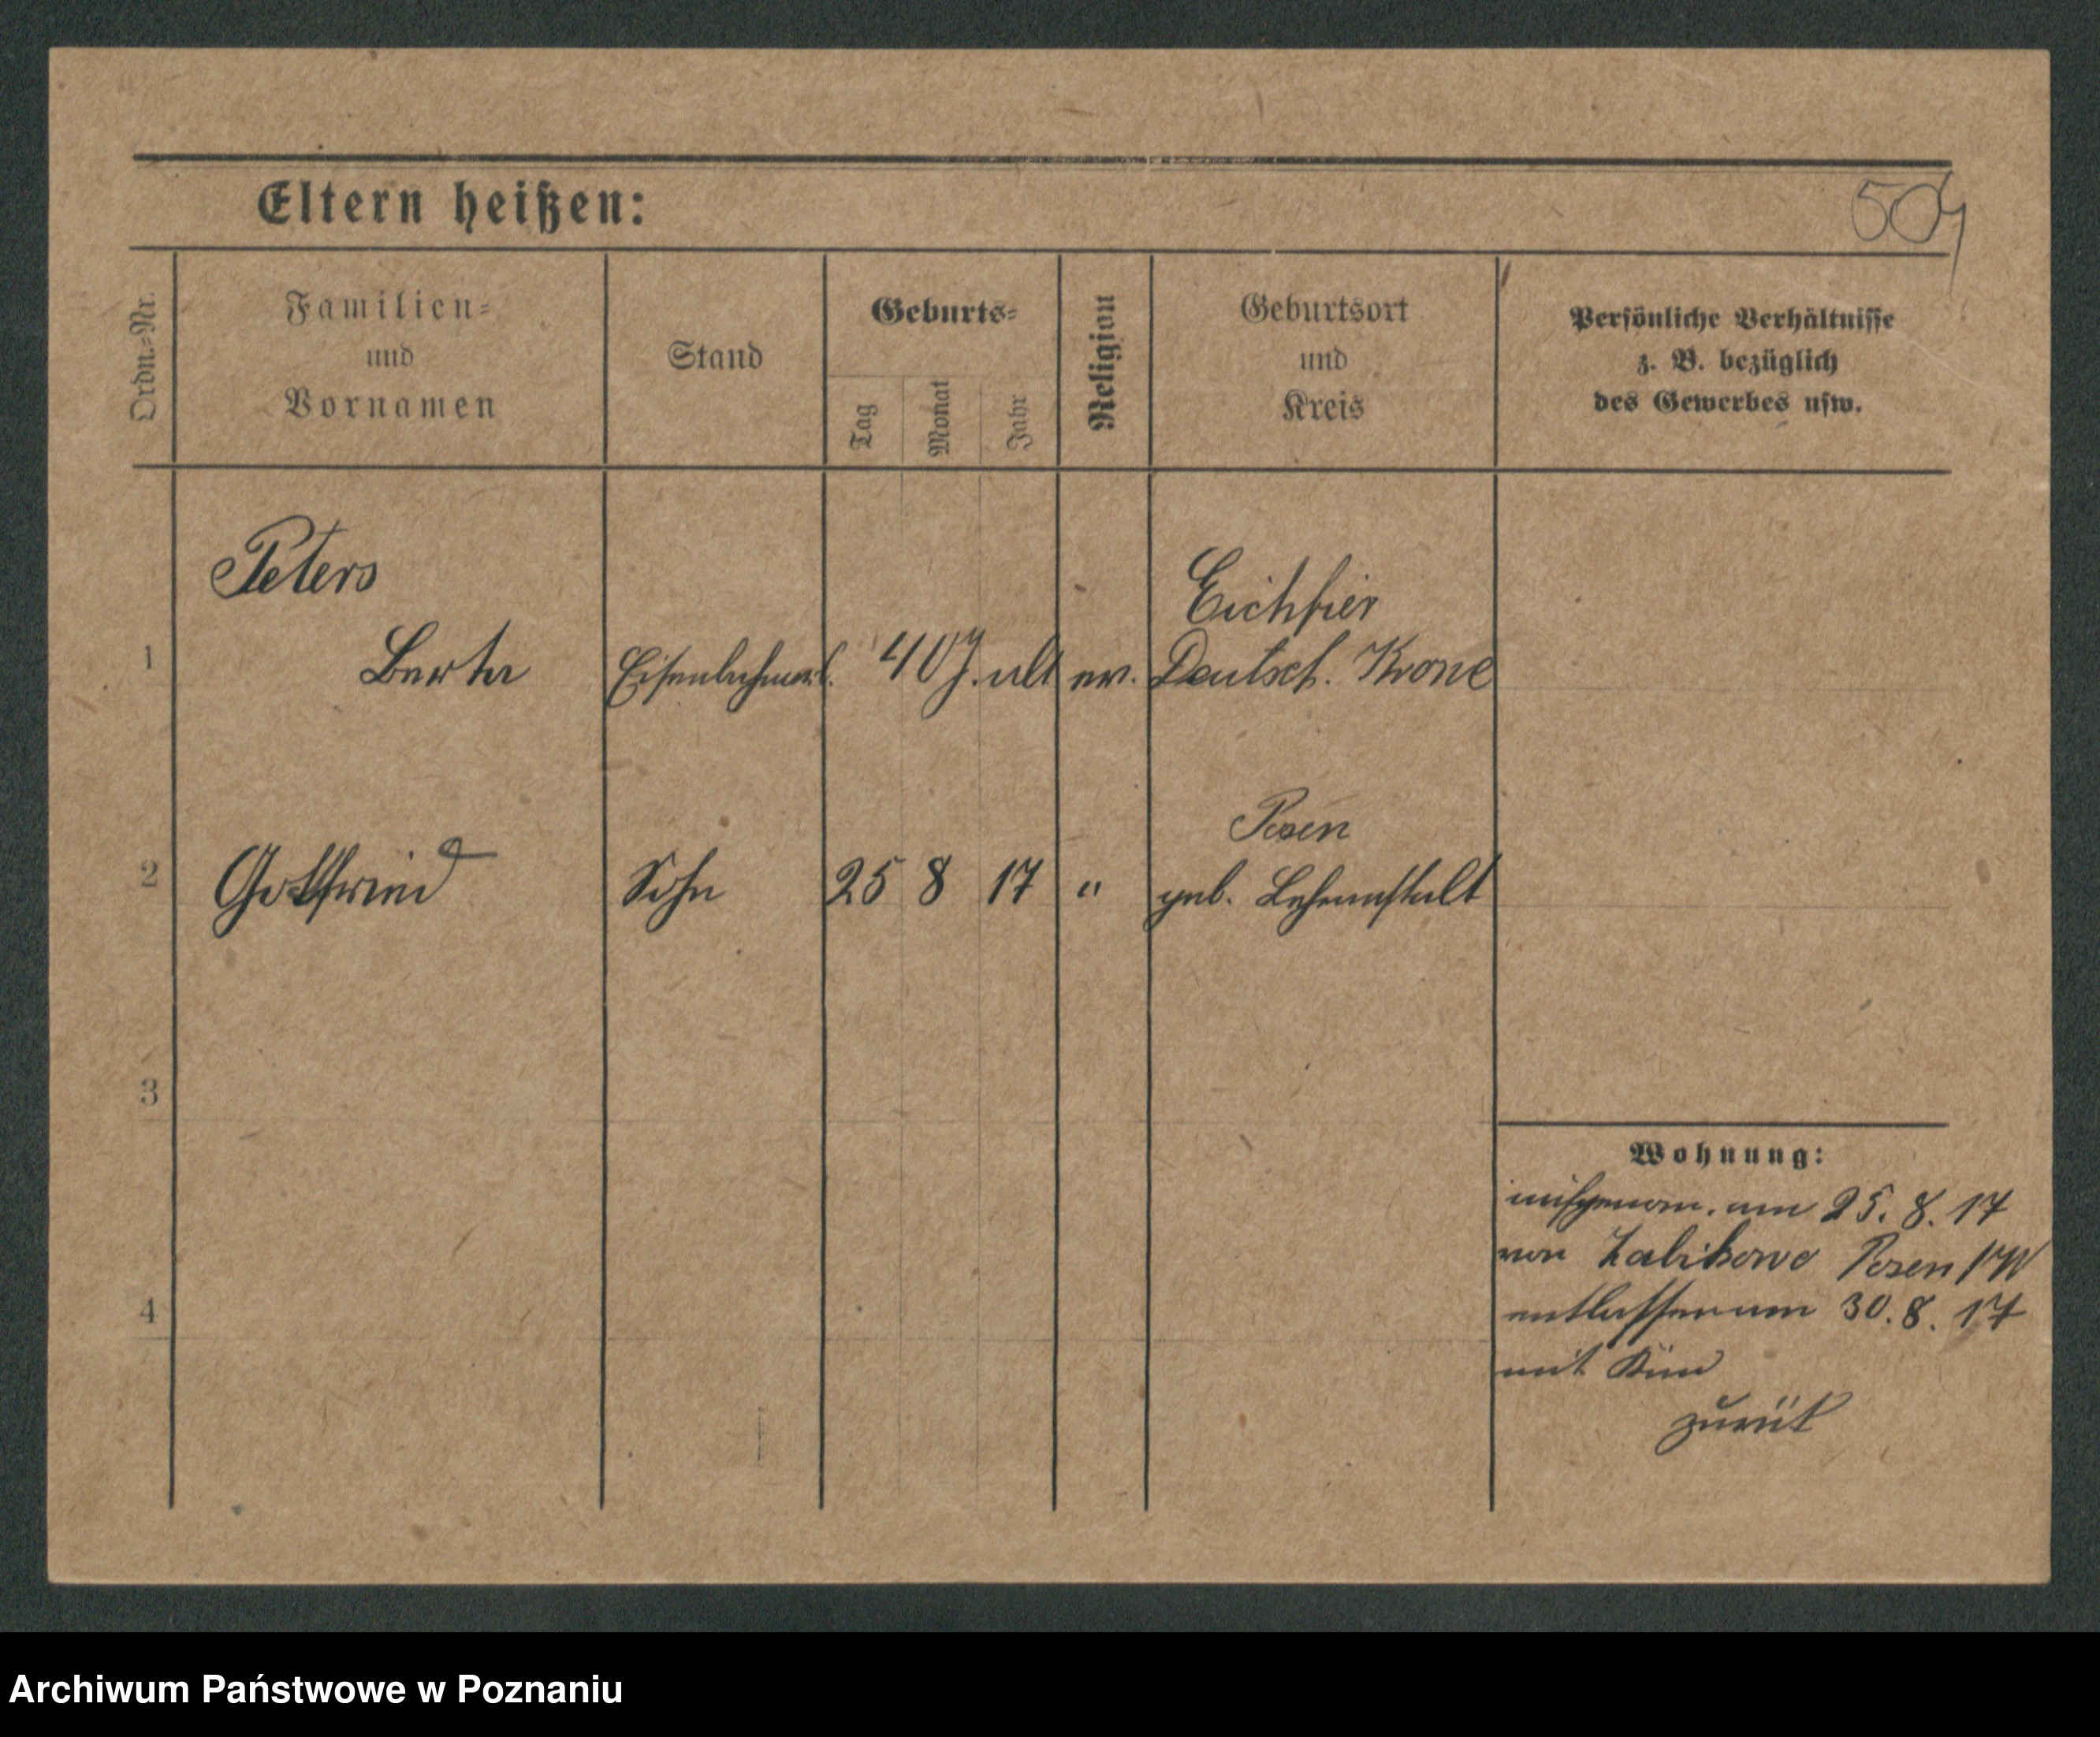 Eltern heißen:
504
Ordn.-Nr.
Familien-
und
Vornamen
Stand
Geburts-
Tag
Monat
Jahr
Religion
Geburtsort
und
Kreis
Persönliche Verhältnisse
z. B. bezüglich
des Gewerbes usw.
Peters
Eichfier
1 Berta 40 J. alt ev. Deutsch. Krone
Posen
2 Gottfried Sohn 25 8 17 " geb.
3
Wohnung:
aufgenom. am 25. 8. 17
von Zabikowo Posen
4 entlassen am 30. 8. 17
mit Kind
zurük
Archiwum Państwowe w Poznaniu